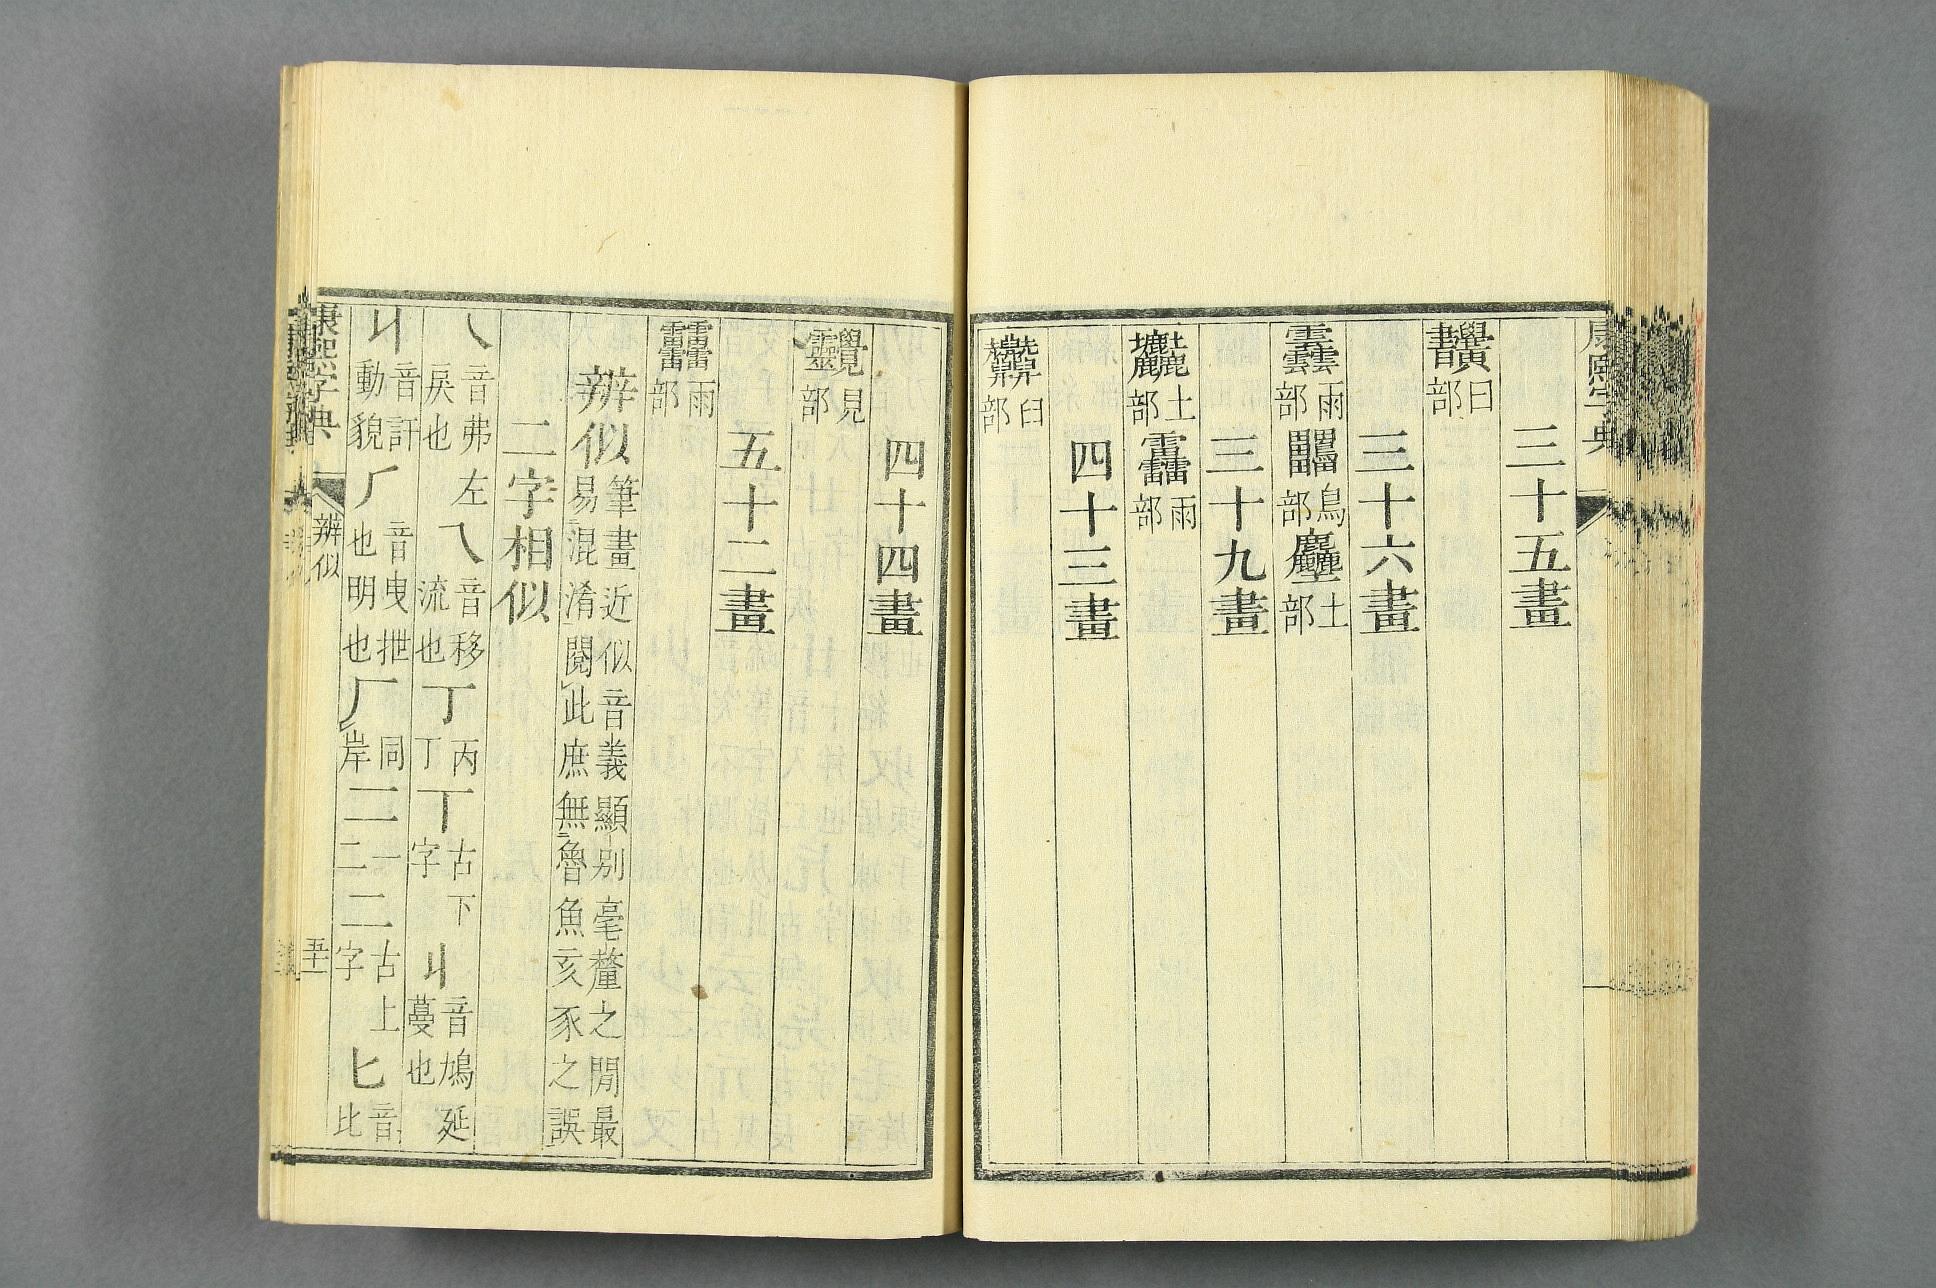 康熙字典
三十五畫
曰部
三十六畫
雨部 鳥部 土部
三十九畫
土部 雨部
四十三畫
臼部
四十四畫
見部
五十二畫
雨部
辨似 筆畫近似音義顯別毫釐之閒最易混淆閱此庶無魯魚亥豕之誤
二字相似
乀 音弗左戾也 乁 音移流也 丁 丙丁 丅 古下字 丩 音鳩延蔓也
丩 音訐動貌 𠂆 音曳抴也明也 厂 同岸 二 一二 𠄞 古上字 匕 音比
康熙字典 辨似 五十一